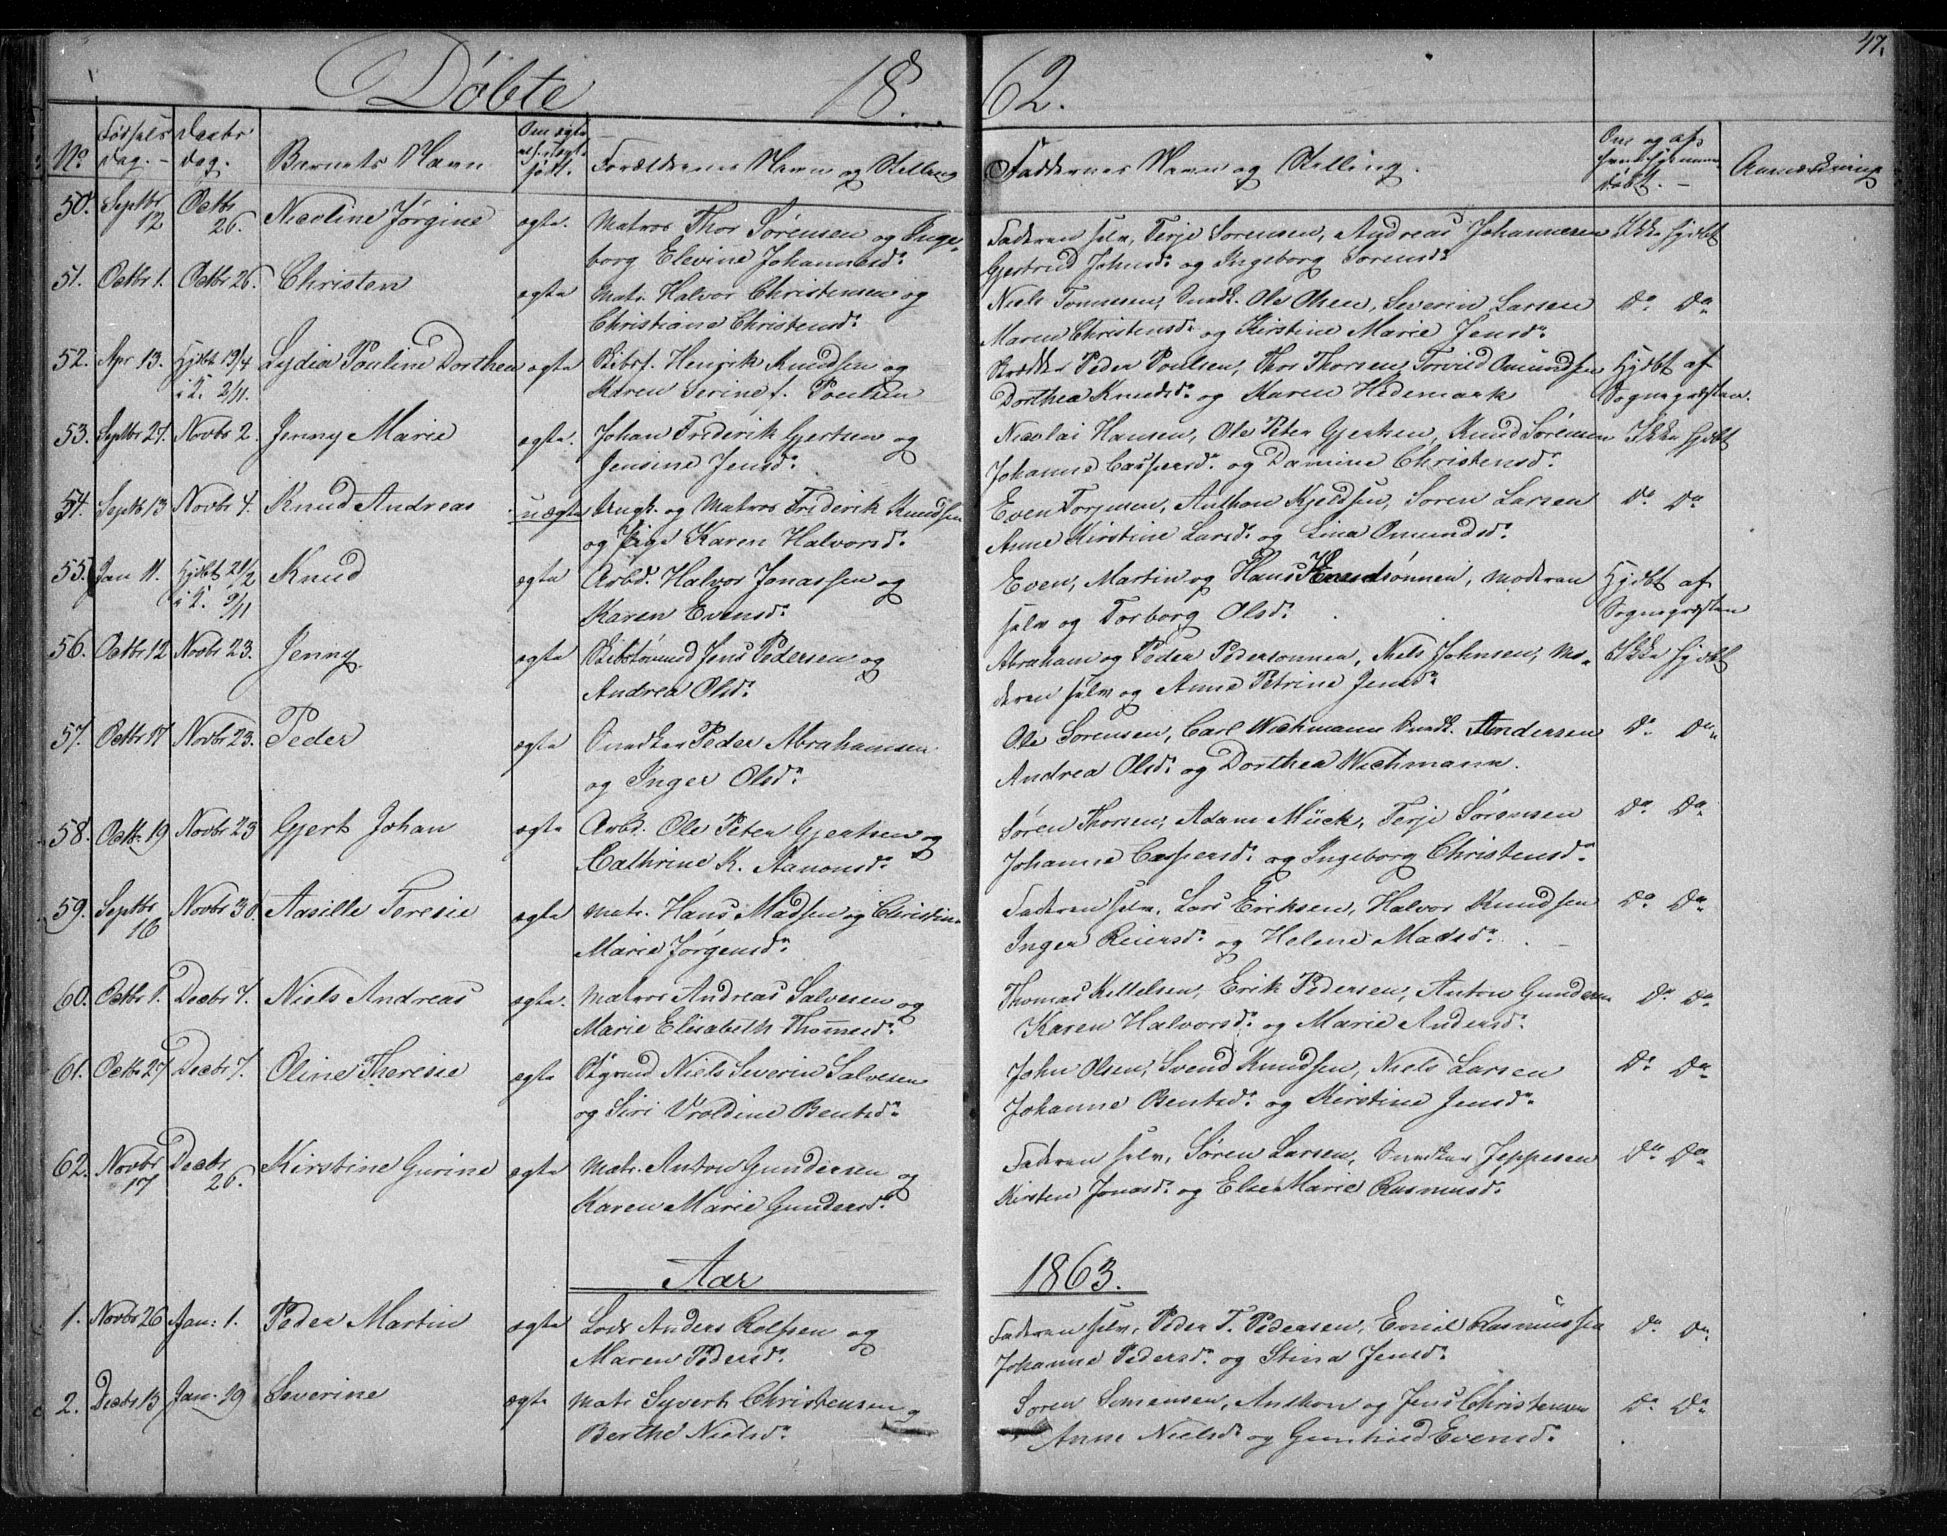 47.
Døbte 1862.
No
Fødsels Dag.
Daabs Dag.
Barnets Navn
Om ægte el. uægte født.
Forældrenes Navn og Stilling
Faddernes Navn og Stilling.
Om og af hvem hjemmedøbt.
Anmærkning
50. Septbr 12 Octbr 26. Nicoline Jørgine ægte. Matros Thor Sørensen og Inge- Faderen selv, Terje Sørensen, Andreas Johannesen Ikke hjdbt
borg Elevine Johannesd. Gjertrud Johnsd. og Ingeborg Sørensd.
51. Octbr 1. Octbr 26. Christen ægte Matr. Halvor Christensen og Niels Tommesen, Snedk. Ole Olsen, Severin Larsen Do Do
Christiane Christensd. Maren Christensd. og Kirstine Marie Jensd.
52. Apr 13. Hjdbt 19/4 Lydia Pouline Dorthea ægte Skibsf. Henrik Knudsen og Peder Poulsen, Thor Thorsen, Torvild Omundsen Hjdbt af
i K. 2/11. Maren Serine f. Poulsen Dorthea Knudsd. og Maren Hedemark Sognepresten.
53. Septbr 27. Novbr 2. Jenny Marie ægte. Johan Friderik Gjertsen og Nicolai Hansen, Ole Peter Gjertsen, Knud Sørensen Ikke hjdbt
Jensine Jensd. Johanne Caspersd. og Damine Christensd.
54. Septbr 13 Novbr 4. Knud Andreas uægte Ungk. og Matros Friderik Knudsen Even Torjusen, Anthon Kjeldsen, Søren Larsen Do Do
og Pige Karen Halvorsd. Anne Kirstine Larsd. og Lina Omundsd.
55. Jan 11. Hjdbt 21/2 Knud ægte Arbd. Halvor Jonassen og Even, Martin og Hans Evensønner, Moderen Hjdbt af
i K. 9/11 Karen Evensd. selv og Torborg Olsd. Sognepresten
56. Octbr 12 Novbr 23. Jenny ægte Skibstømmd Jens Pedersen og Abraham og Peder Pedersønner, Niels Johnsen, Mo- Ikke hjdbt
Andrea Olsd. deren selv og Anne Petrine Jensd.
57. Octbr 17 Novbr 23. Peder ægte Snedker Peder Abrahamsen Ole Sørensen, Carl Wichmann Snedk. Andersen Do Do
og Inger Olsd. Andrea Olsd. og Dorthea Wichmann.
58. Octbr. 19 Novbr 23 Gjert Johan ægte Arbd. Ole Peter Gjertsen og Søren Thorsen, Adam Mück, Terje Sørensen Do Do
Cathrine K. Aanonsd. Johanne Caspersd. og Ingeborg Christensd.
59. Septbr 16 Novbr 30. Aasille Teresie ægte Matr. Hans Madsen og Christine Faderen selv, Lars Eriksen, Halvor Knudsen Do Do
Marie Jørgensd. Inger Reiersd. og Helene Madsd.
60. Octbr 1. Decbr 7. Niels Andreas ægte. Matros Andreas Salvesen og Thomas Kittelsen, Erik Pedersen, Anton Gundersen Do Do
Marie Elisabeth Thomesd. Karen Halvorsd. og Marie Andersd.
61. Octbr 27 Decbr 7. Oline Theresie ægte Niels Severin Salvesen John Olsen, Svend Knudsen, Niels Larsen Do Do
og Siri Uroldine Bentsd. Johanne Bentsd. og Kirstine Jensd.
62. Novbr 17 Decbr 26. Kirstine Gurine ægte Matr. Anton Gundersen og Faderen selv, Søren Larsen, Snedker Jeppesen Do Do
Karen Marie Gundersd. Kirsten Jonasd. og Else Marie Rasmusd.
Aar 1863.
1. Novbr 26 Jan: 1. Peder Martin ægte Lods Anders Rolfsen og Faderen selv, Peder T. Pedersen, Emil Rasmussen Do Do
Maren Pedersd. Johanne Pedersd. og Stina Jensd.
2. Decbr 13 Jan. 19 Severine ægte Matr Syvert Christensen og Søren Simensen, Anthon og Jens Christensen Do Do
Berthe Nielsd. Anne Nielsd. og Gunhild Evensd.